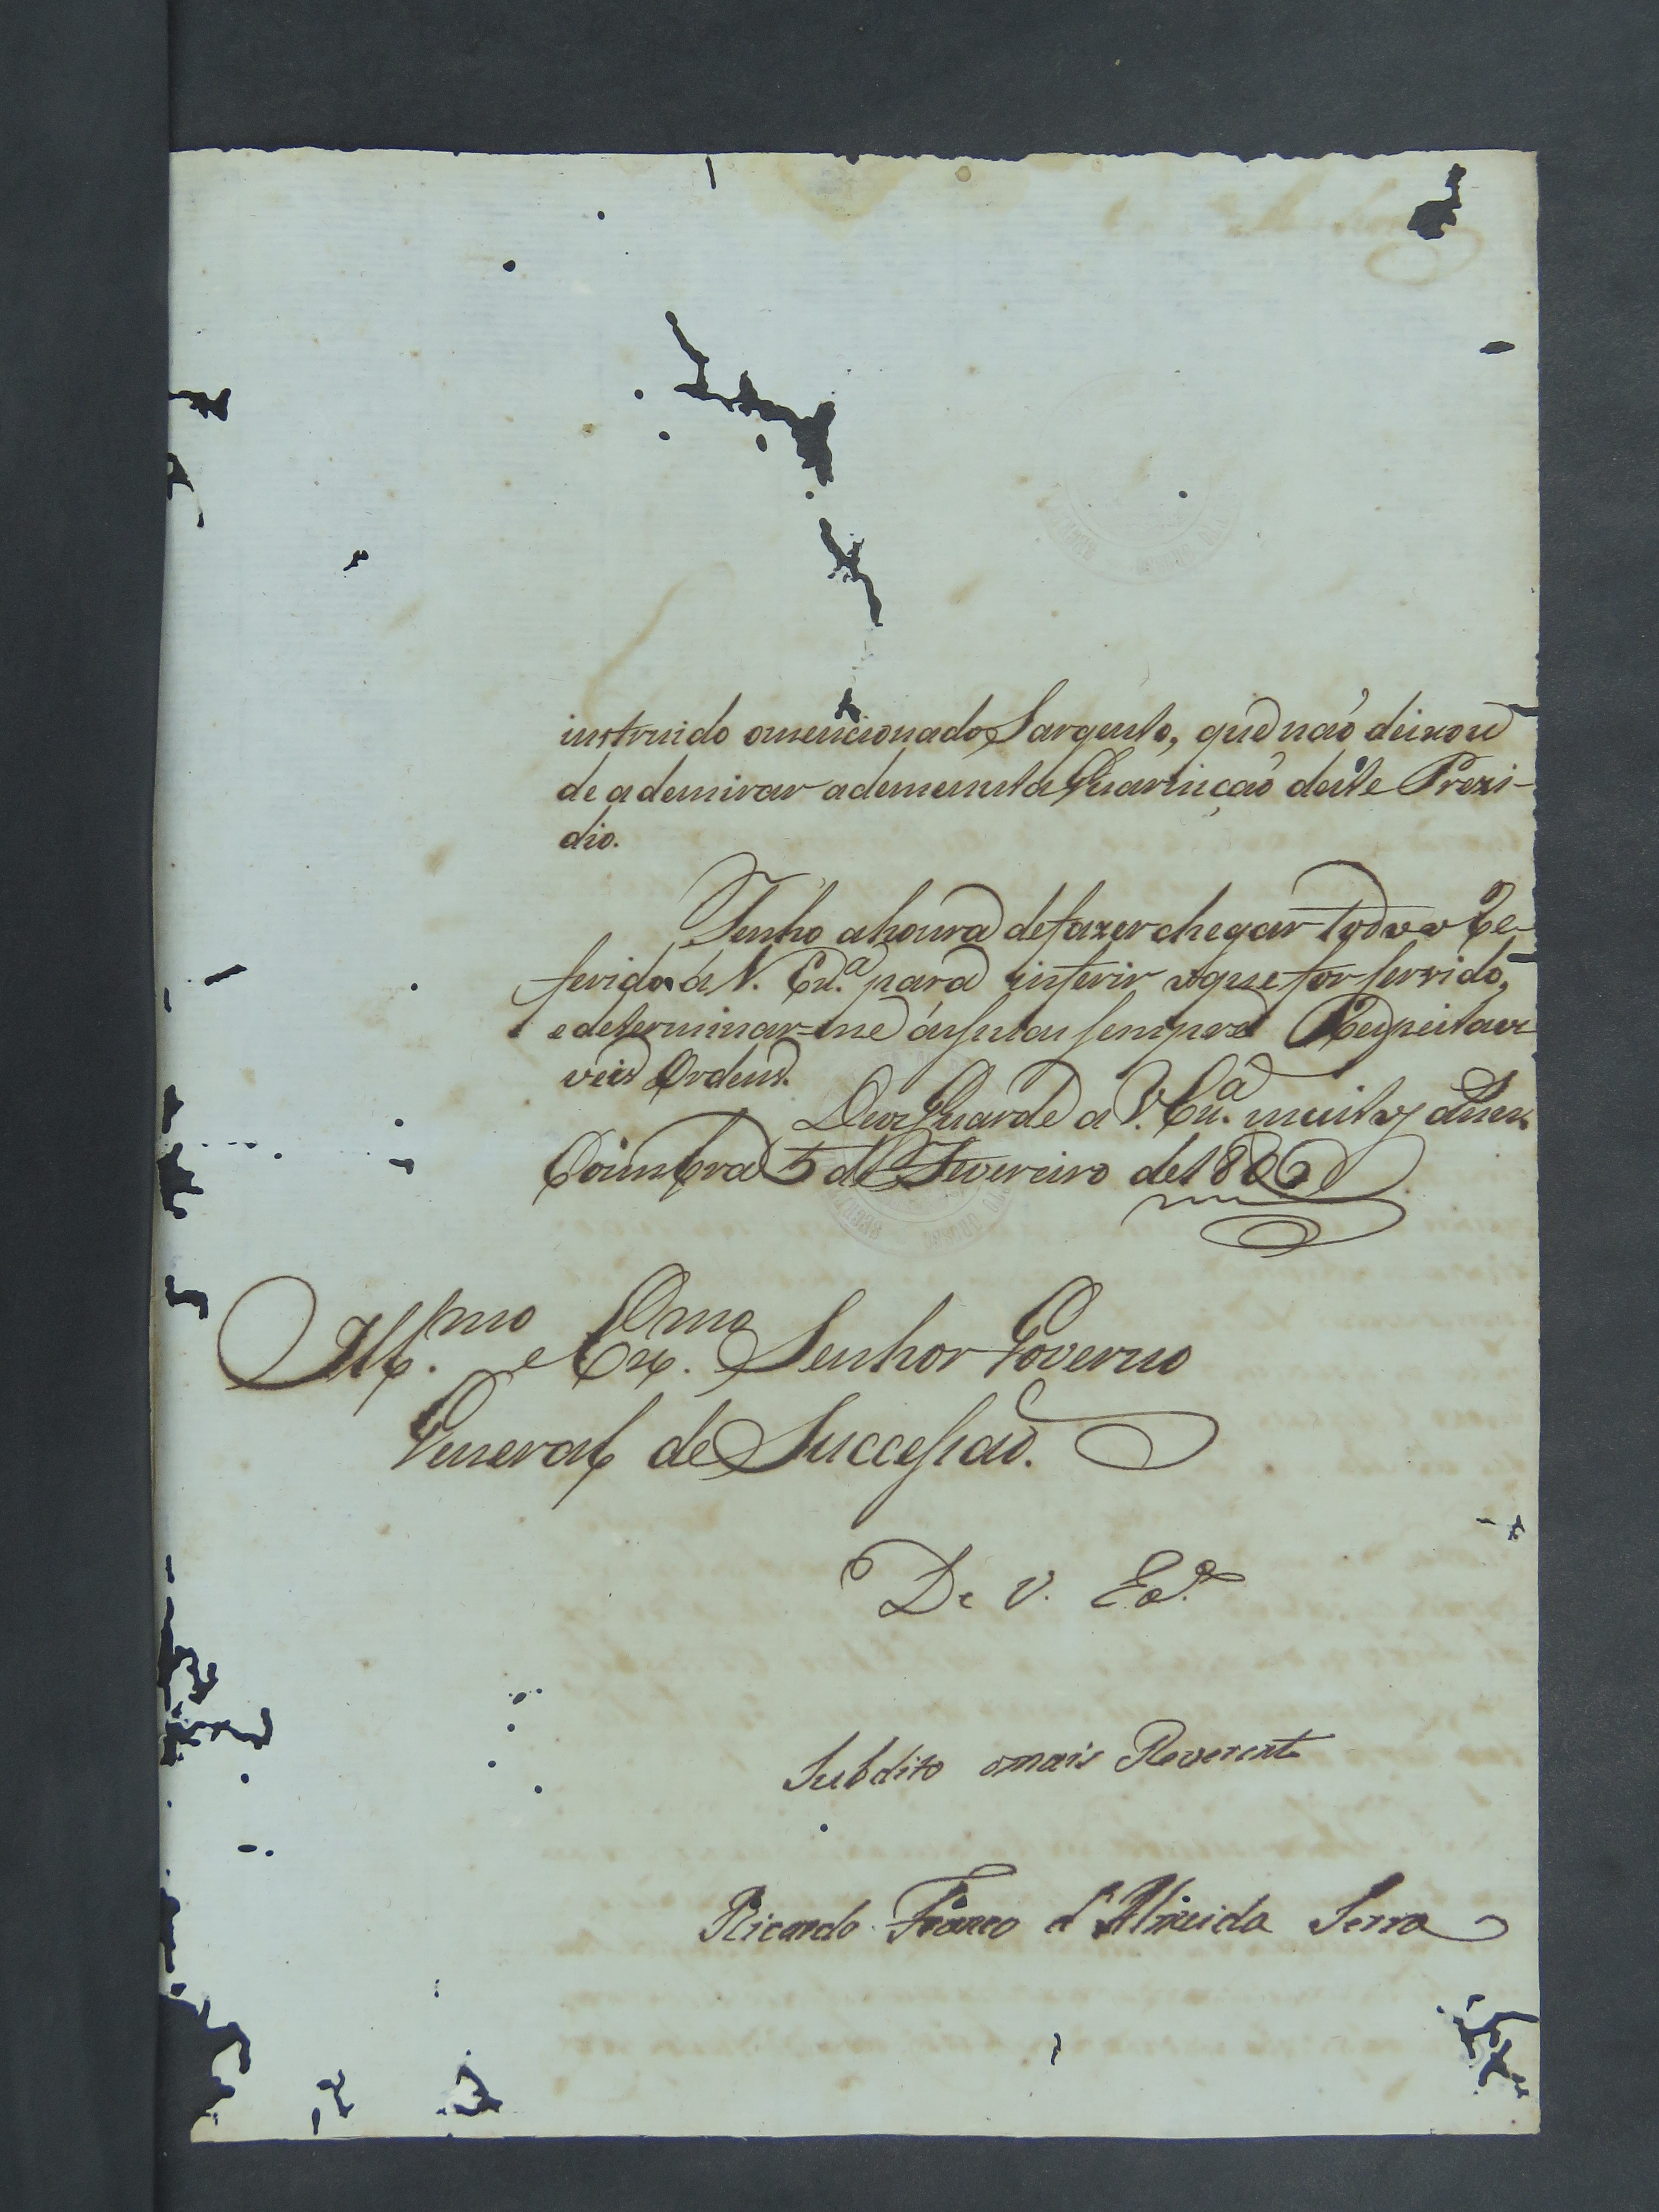 instruido omencionado Sargento, que naõ deixou
de ademirar ademenuta Guarniçaõ deste Prezi-
dio.
Tenho ahonra defazer chegar todo o re-
ferido a V. Exa. para inferir oque for servido,
edeterminar-me ássuas sempre Respeitav
veis Ordens.
Deos Guarde a V. Exa. muitos annos.
Coimbra 5 de Fevereiro de 1806
Illmo. e Exmo. Senhor Governo
General de Successaõ.
De V. Exa.
Subdito omais Reverente
Ricardo Franco d'Almeida Serra